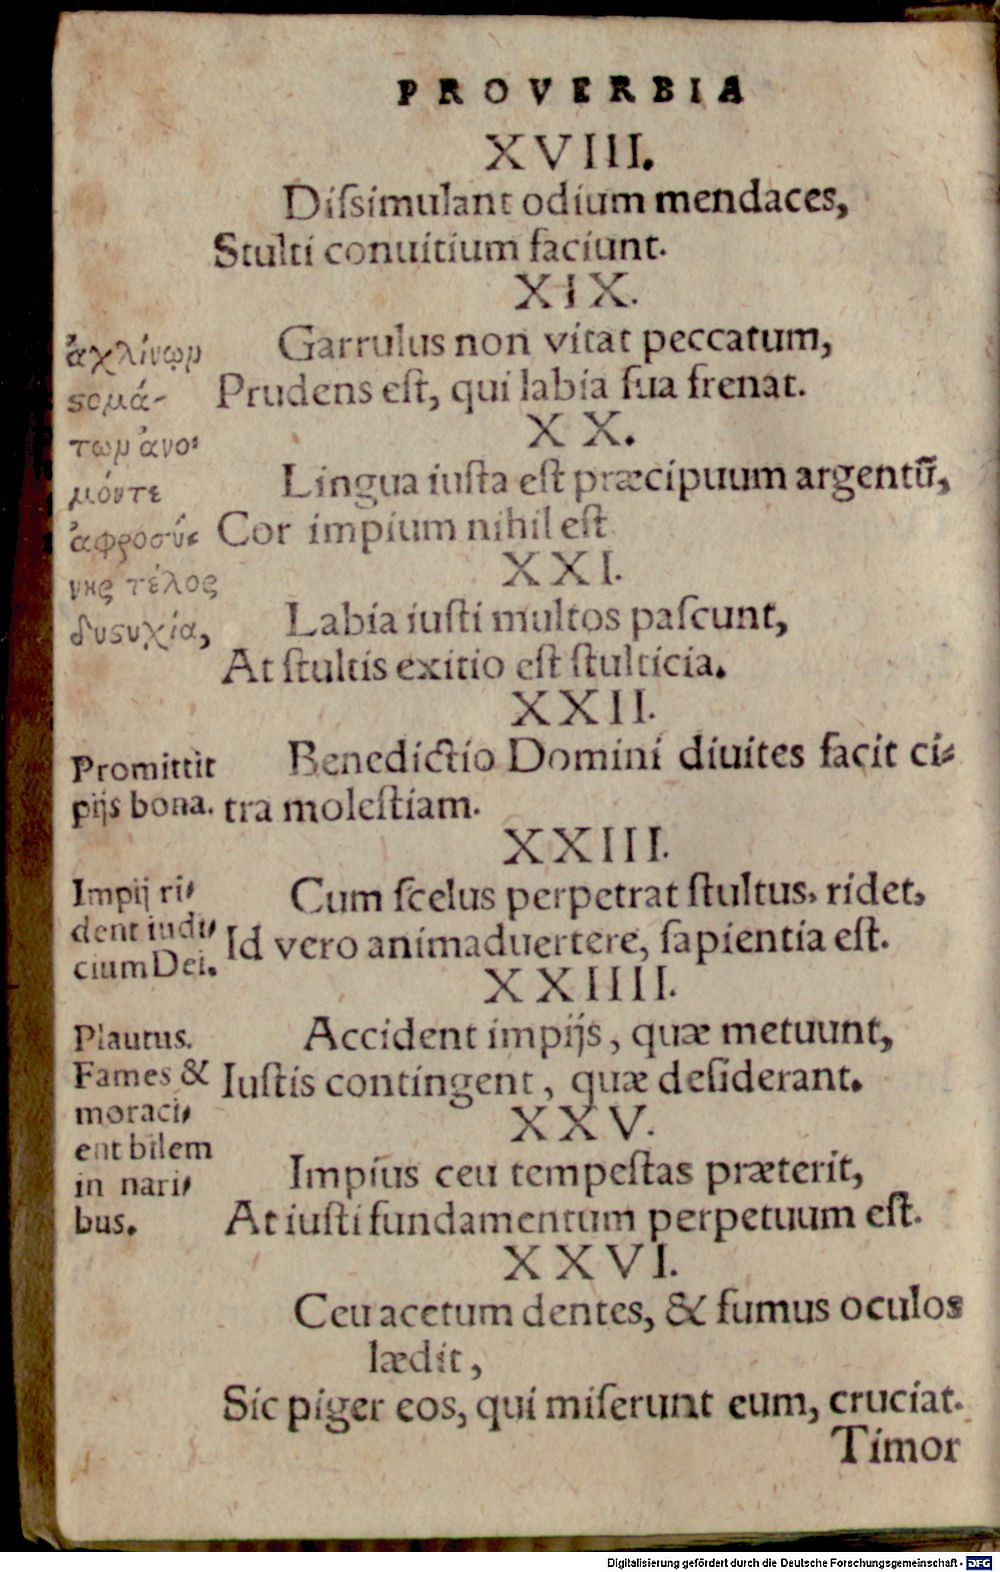 PROVERBIA
XVIII.
Diſsimulant odium mendaces,
Stulti conuitium faciunt.
XIX.
Garrulus non vitat peccatum,
Prudens eſt, qui labia ſua frenat.
XX.
Lingua iuſta eſt præcipuum argentũ,
Cor impium nihil eſt
XXI.
Labia iuſti multos paſcunt,
At ſtultis exitio eſt ſtulticia.
XXII.
Benedictio Domini diuites facit ci-
tra moleſtiam.
XXIII.
Cum ſcelus perpetrat ſtultus, ridet,
Id vero animaduertere, ſapientia eſt.
XXIIII.
Accident impijs, quæ metuunt,
Iuſtis contingent, quæ deſiderant.
XXV.
Impius ceu tempeſtas præterit,
At iuſti fundamentum perpetuum eſt.
XXVI.
Ceu acetum dentes, & fumus oculos
lædit,
Sic piger eos, qui miſerunt eum, cruciat.
Timor
ἀχλίνωμ
ϛομά-
τωμ ἀνο-
μόντε
ἀφροσύ-
νης τέλος
δυϛυχία,
Promittit
pijs bona.
Impij ri-
dent iudi-
cium Dei.
Plautus.
Fames &
mora ci-
ent bilem
in nari-
bus.
Digitalisierung gefördert durch die Deutsche Forschungsgemeinschaft - DFG